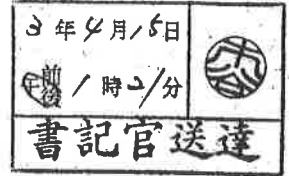 3年4月15日
午前後1時21分
書記官送達